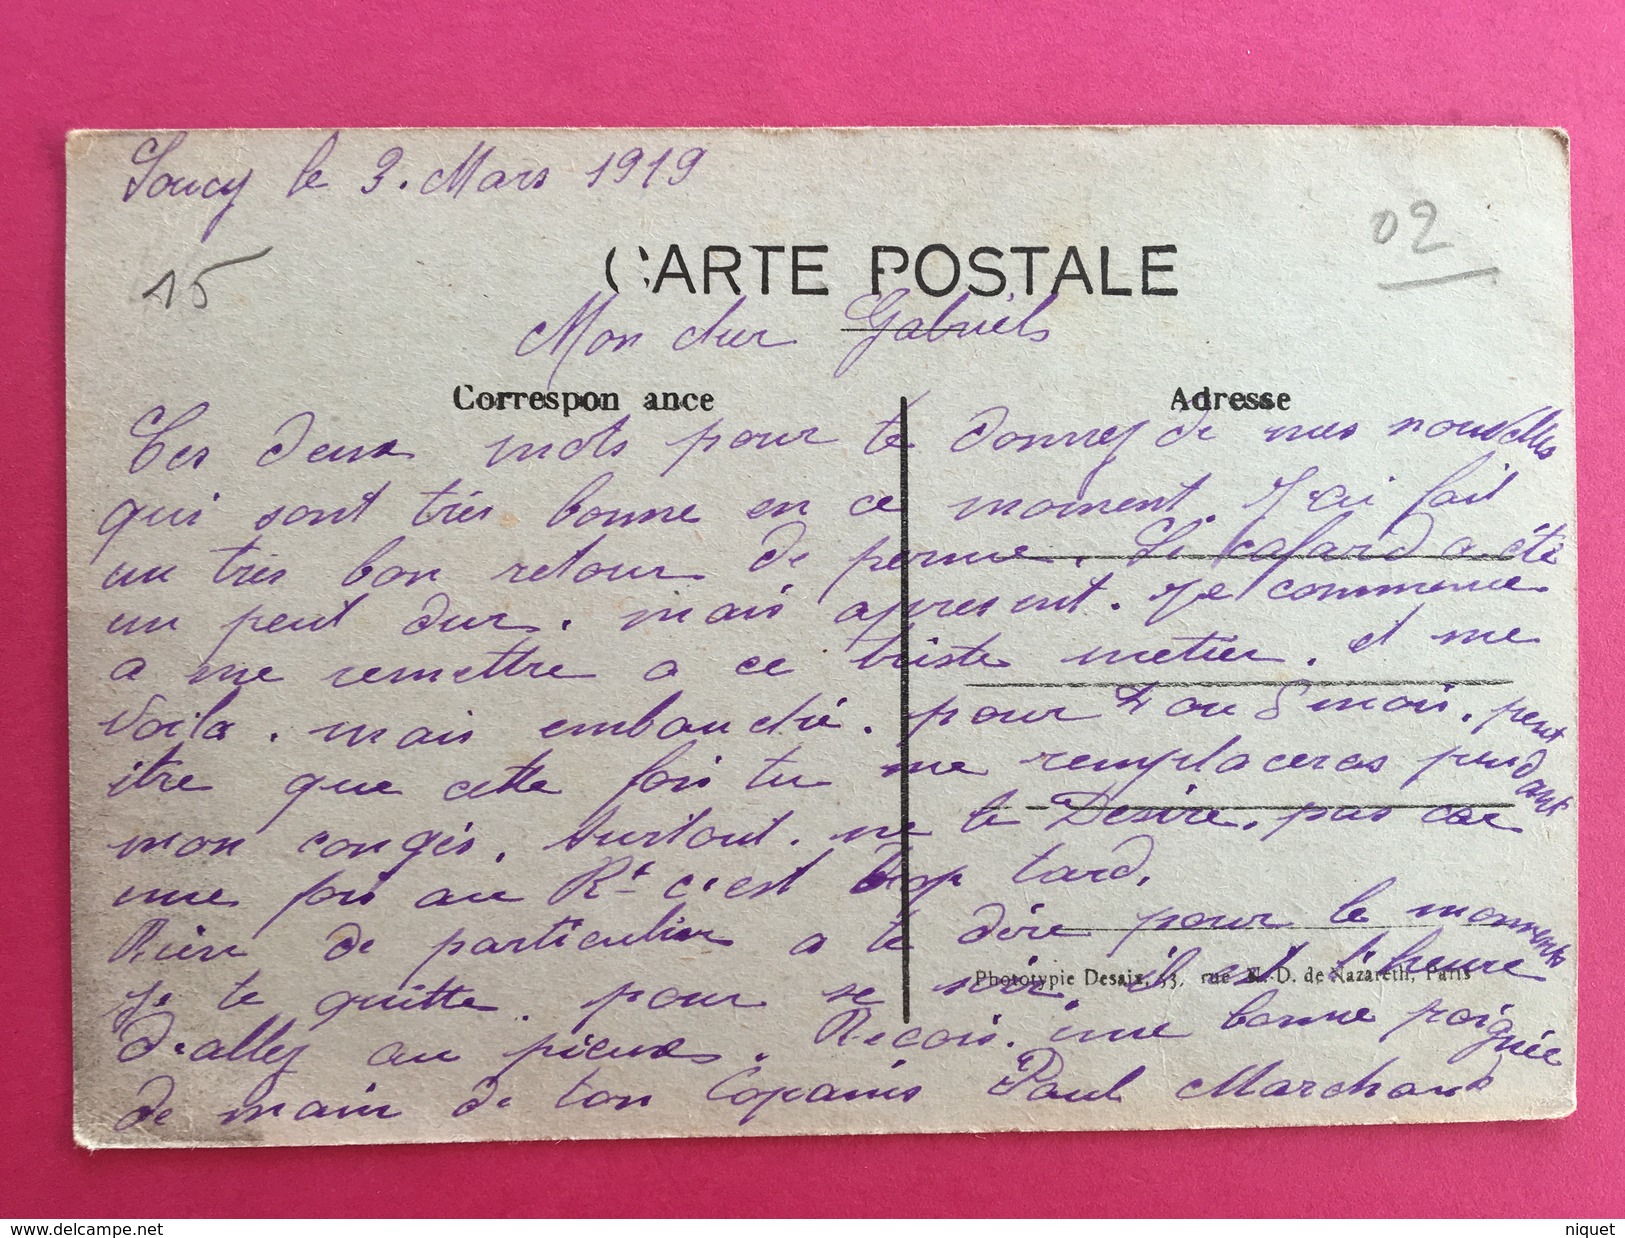 Soucy le 3. Mars 1919
02
15
CARTE POSTALE
Mon cher Gabriels
Correspon ance
Adresse
Ces deux mots pour te donney de mes nouvelles
qui sont très bonne en ce moment. J'ai fait
un très bon retour de perme. Le cafard a été
un peut dur. mais apresent. Je commence
a me remettre a ce triste metier. et me
voila. mais embauché. pour 4 ou 5 mois. peut
être que cette fois tu me remplaceras pendant
mon congés. surtout. ne te Desire. pas car
une fois au Rt c'est trop tard.
Rien de particulier a te dire pour le moments
Je te quitte pour ce soir. il est l'heure
d'alley au pieux. Reçois. une bonne poignée
de main de ton Copains Paul Marchand
Phototypie Desaix, 53, rue N.-D. de Nazareth, Paris
delcampe.net
niquet